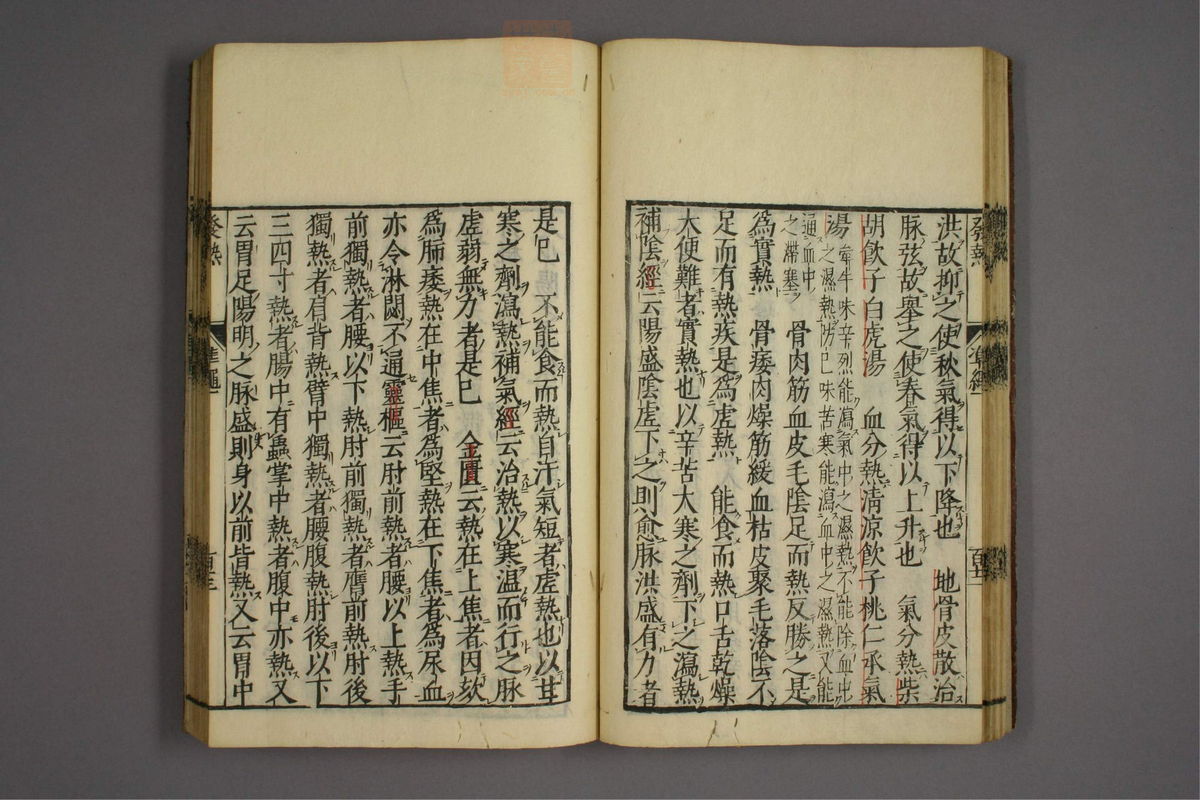 洪故抑之使秋氣得以下降也　地骨皮散治
脉弦故舉之使春氣得以上升也　氣分熱柴
胡飲子白虎湯　血分熱清涼飲子桃仁承氣
湯
牽牛味辛烈能瀉氣中之濕熱不能除血中
之濕熱防巳味苦寒能瀉血中之濕熱又能
通血中
之滯塞
骨肉筋血皮毛陰足而熱反勝之是
爲實熱　骨痿肉燥筋緩血枯皮聚毛落陰不
足而有熱疾是爲虛熱　能食而熱口舌乾燥
大便難者實熱也以辛苦大寒之劑下之瀉熱
補陰經云陽盛陰虛下之則愈脉洪盛有力者
是巳　不能食而熱自汗氣短者虛熱也以甘
寒之劑瀉熱補氣經云治熱以寒温而行之脉
虛弱無力者是巳　金匱云熱在上焦者因欬
爲肺痿熱在中焦者爲堅熱在下焦者爲尿血
亦令淋閟不通靈樞云肘前熱者腰以上熱手
前獨熱者腰以下熱肘前獨熱者膺前熱肘後
獨熱者肩背熱臂中獨熱者腰腹熱肘後以下
三四寸熱者腸中有蟲掌中熱者腹中亦熱又
云胃足陽明之脉盛則身以前皆熱又云胃中
發熱
準繩一